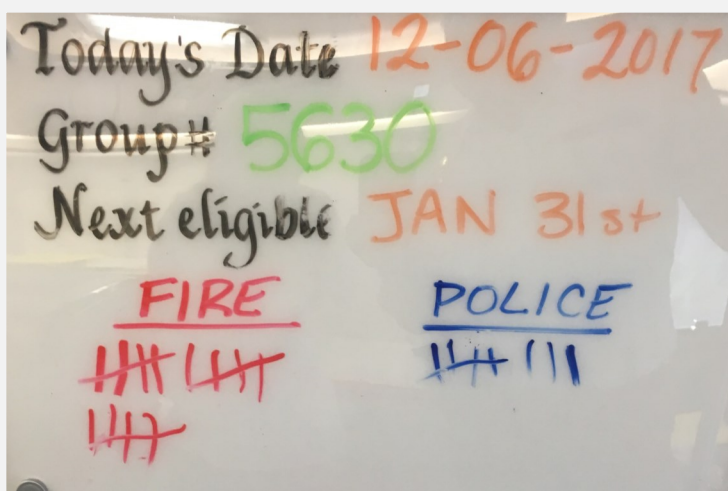 Today's Date 12-06-2017
Group# 5630
Next eligible JAN 31st
FIRE POLICE